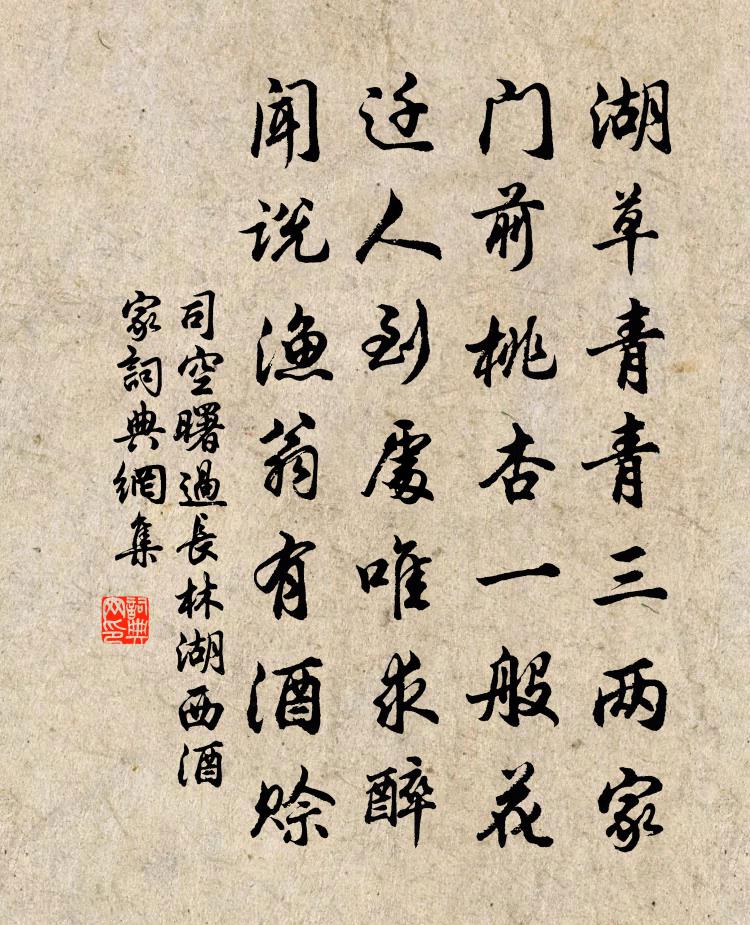 湖草青青三两家
门前桃杏一般花
迁人到處唯求醉
闻说渔翁有酒赊
司空曙過長林湖西酒
家詞典網集
詞典
网印